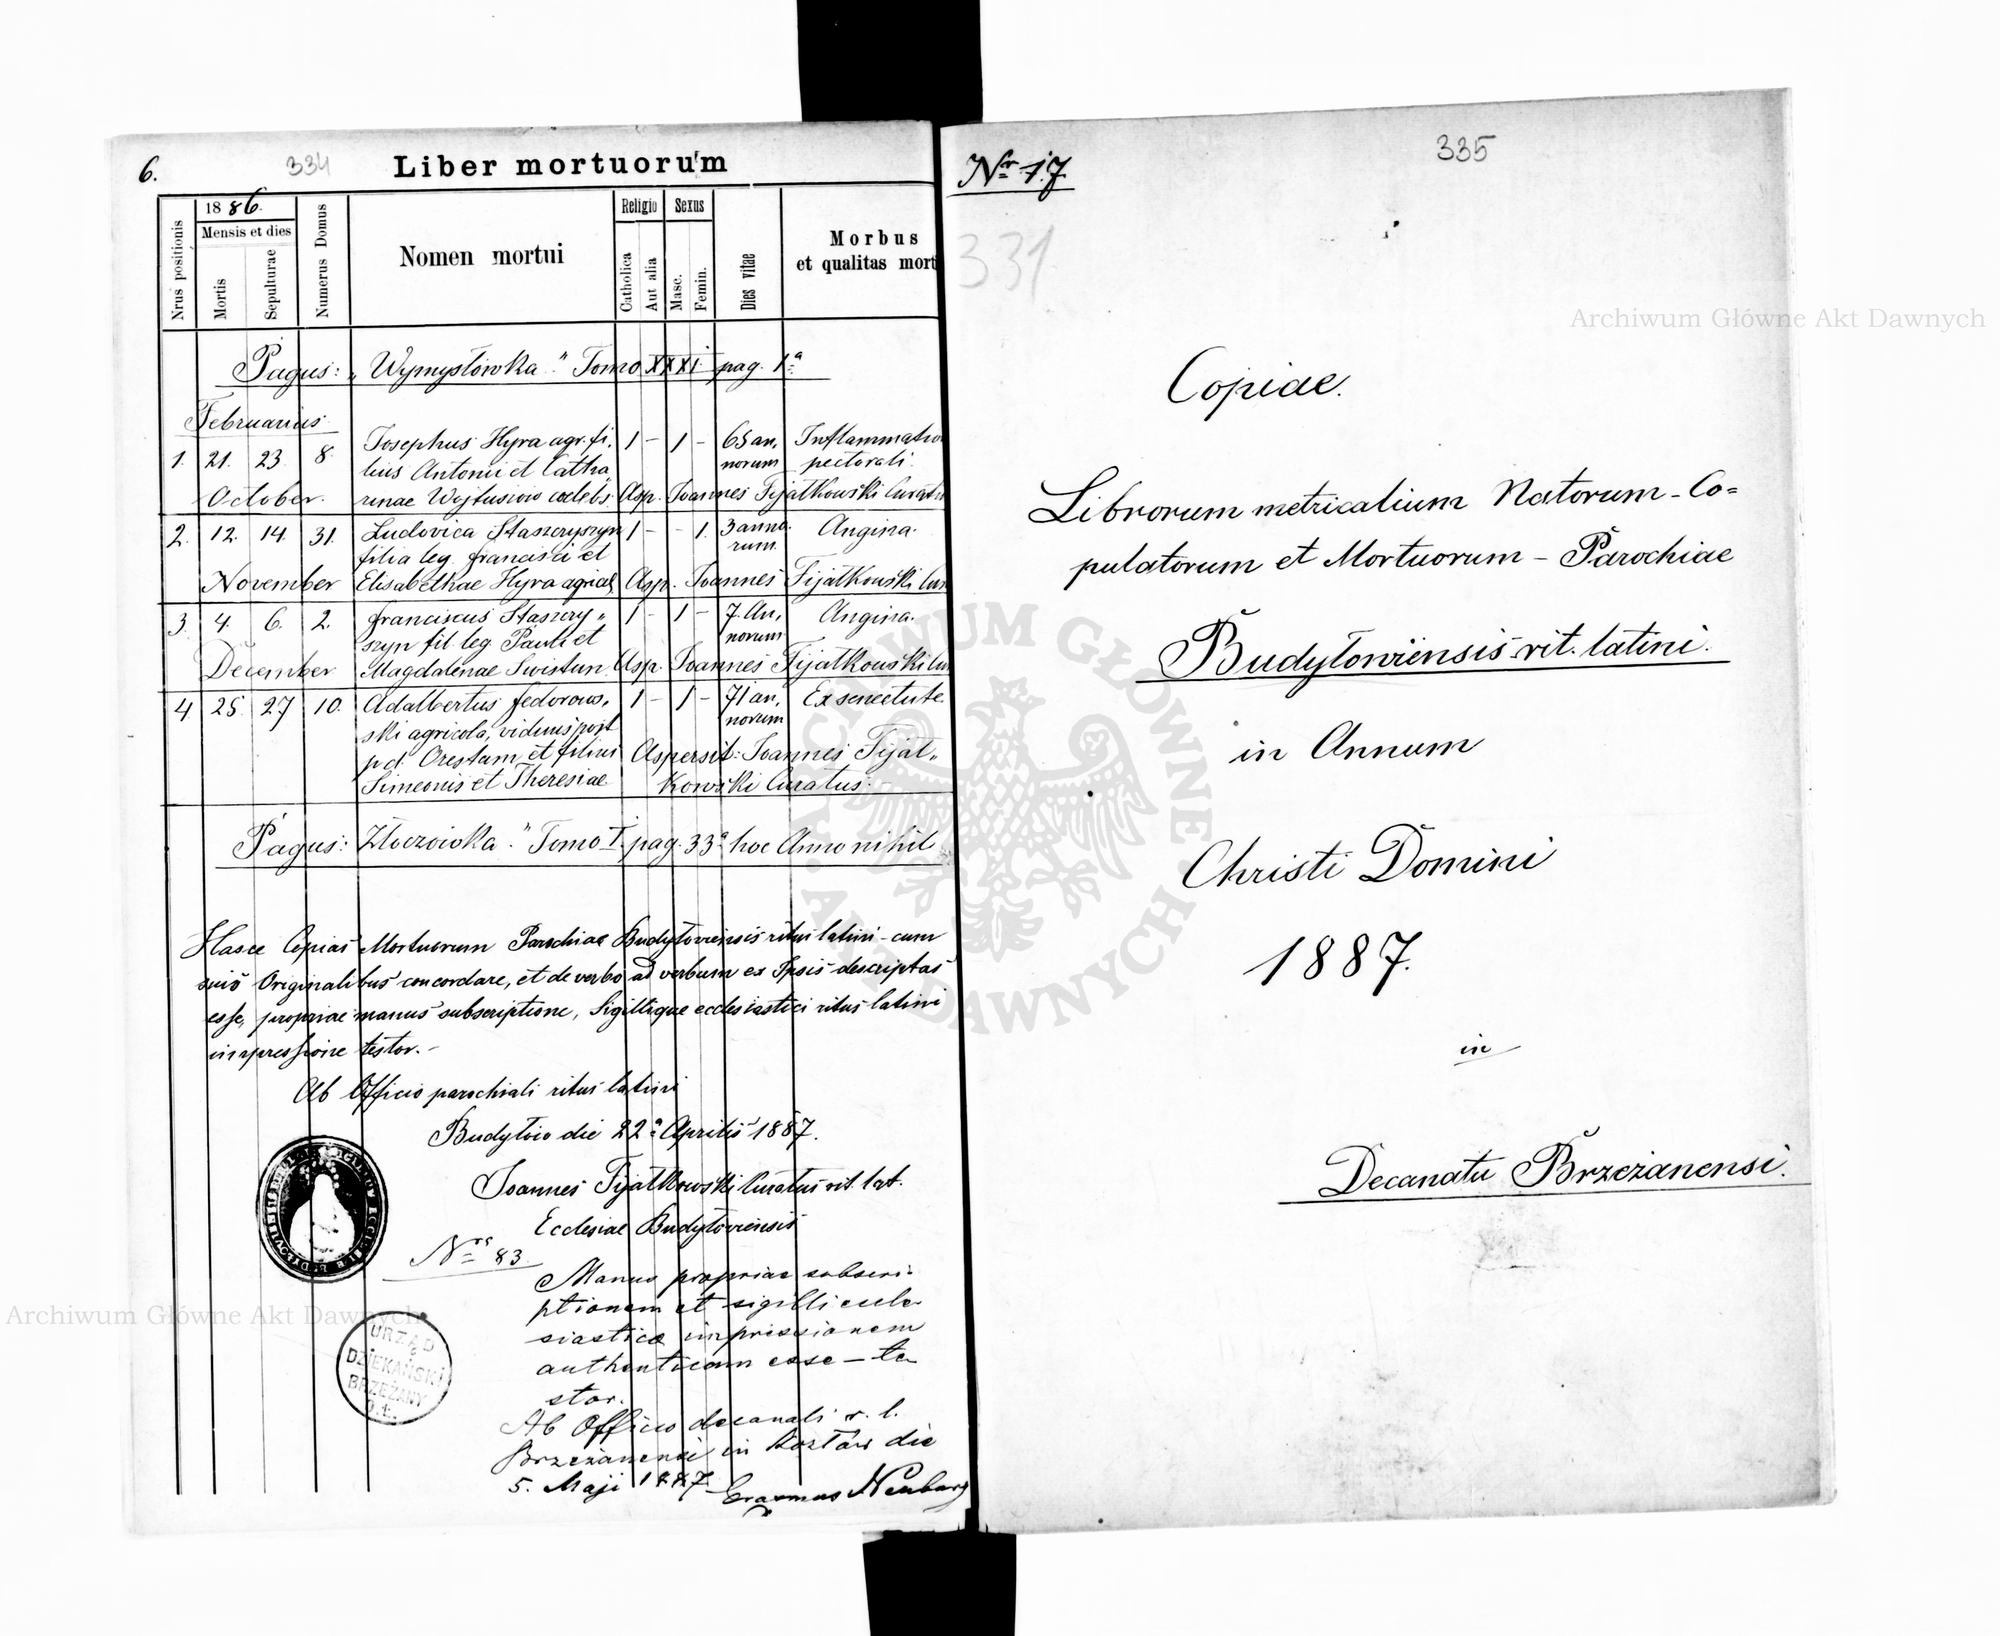 6.
334
Liber mortuorum
Nrus positionis
1886.
Mensis et dies
Mortis
Sepulturae
Numerus Domus
Nomen mortui
Religio
Catholica
Aut alia
Sexus
Masc.
Femin.
Dies vitae
Morbus
et qualitas mort
Pagus: „Wymysłówka." Tomo XXXI. pag. 1ª
Februarius
1. 21. 23. 8. Josephus Hyra agr. fi- 1 – 1 – 65 an- Inflammatio
lius Antonii et Catha- norum pectorali.
October. rinae Wojtusiow caelebs. Asp. Joannes Fijałkowski Curatu
2. 12. 14. 31. Ludovica Staszczyszyn 1 – – 1. 3 anno- Angina.
filia leg. Francisci et rum
November Elisabethae Hyra agricol. Asp. Joannes Fijałkowski Cur
3. 4. 6. 2. Franciscus Staszczy- 1 – 1 – 7. An- Angina.
szyn fil. leg. Pauli et norum
December Magdalenae Swistun. Asp. Joannes Fijałkowski Cu
4 25. 27 10. Adalbertus Fedorows- 1 – 1 – 71 an- Ex senectute
ski agricola, viduus post norum
p.d. Orestam et filius Aspersit: Joannes Fijał-
Simeonis et Theresiae kowski Curatus.
Pagus: Złoczówka." Tomo I. pag. 33ª hoc Anno nihil
Hasce Copias Mortuorum Parochiae Budyłoviensis ritus latini – cum
suis Originalibus concordare, et de verbo ad verbum ex Ipsis descriptas
esse, propriae manus subscriptione, Sigillique ecclesiastici ritus latini
impressione testor. –
Ab Officio parochiali ritus latini
Budyłów die 22ª Aprilis 1887.
Joannes Fijałkowski Curatus rit. lat.
Ecclesiae Budyłoviensis
Nrus 83.
Manus propriae subscri-
ptionem et sigilli eccle-
siastici impressionem
authenticam esse – te-
stor.
Ab Officio decanali r. l.
Brzeżanensi in Kozłów die
5. Maji 1887
Erasmus Neuburg
URZĄD
DZIEKAŃSKI
BRZEŻANY
Nr 17
335
331
Copiae.
Librorum metricalium Natorum – Co=
pulatorum et Mortuorum – Parochiae
Budyłoviensis rit. latini.
in Annum
Christi Domini
1887.
in
Decanatu Brzeżanensi.
Archiwum Główne Akt Dawnych
Archiwum Główne Akt Dawnych
ARCHIWUM GŁÓWNE AKT DAWNYCH